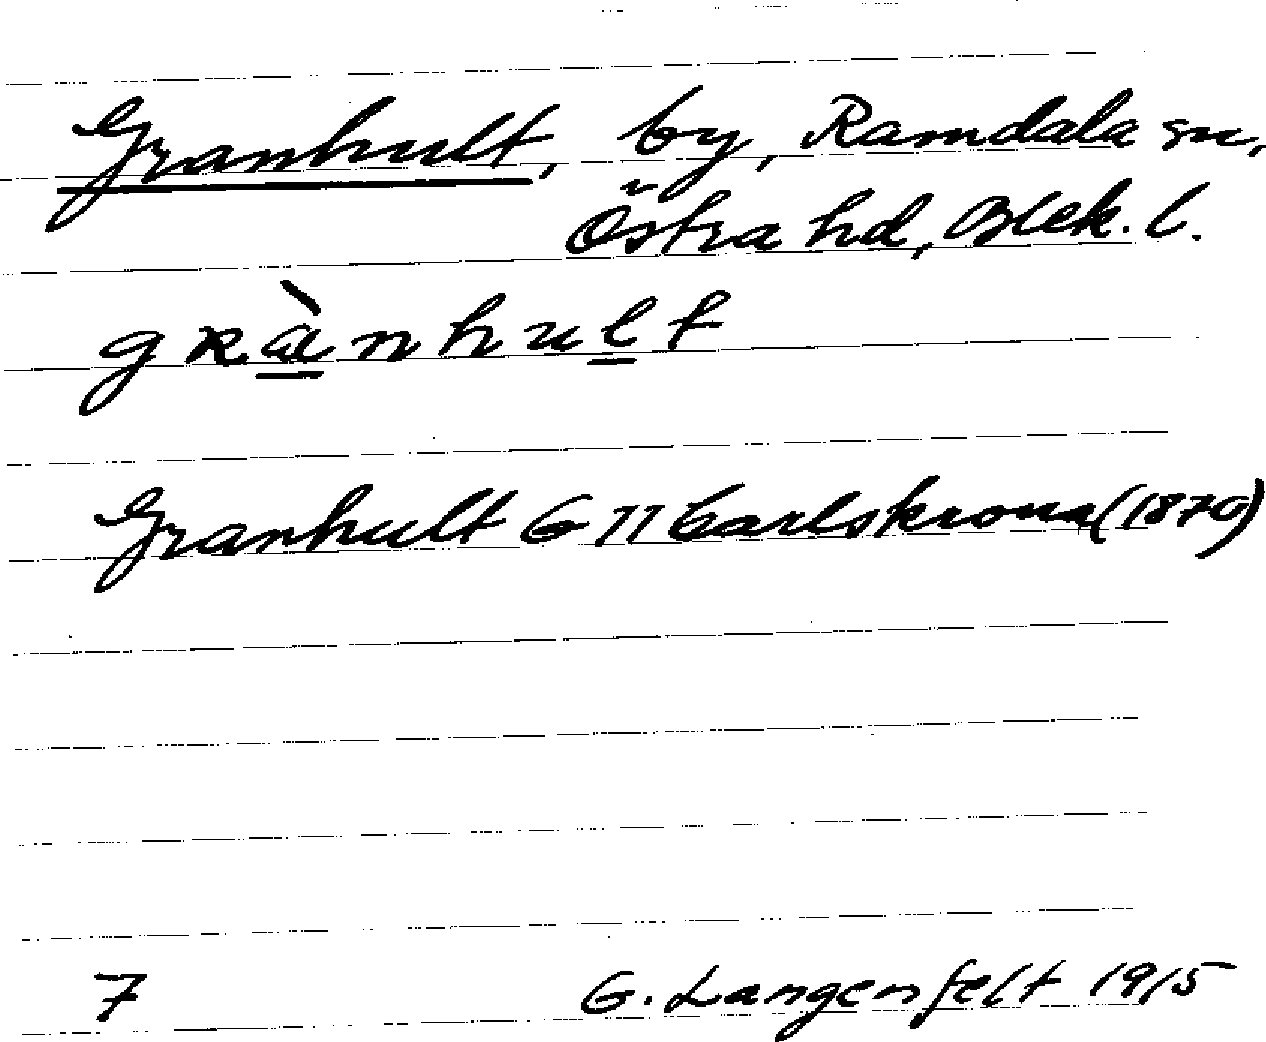 Granhult, by, Ramdala sn,
Östra hd, Blek. l.
grànhult
Granhult G 11 Carlskrona (1870)
7 G. Langenfelt 1915